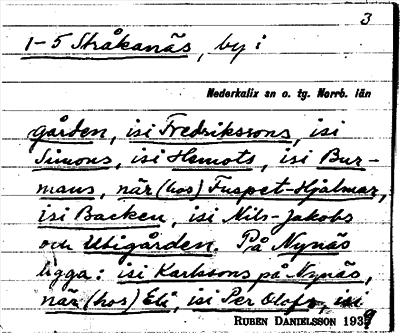 3
1-5 Stråkanäs, by:
Nederkalix sn o. tg. Norrb. län
gården, isi Fredrikssons, isi
Simons, isi Hemots, isi Bur-
mans, när (hos) Fuspet-Hjalmar,
isi Backen, isi Nils-Jakobs
och Utigården. På Nynäs
ligga: isi Karlssons på Nynäs,
när (hos) Eli, isi Per Olofs, isi
RUBEN DANIELSSON 1939